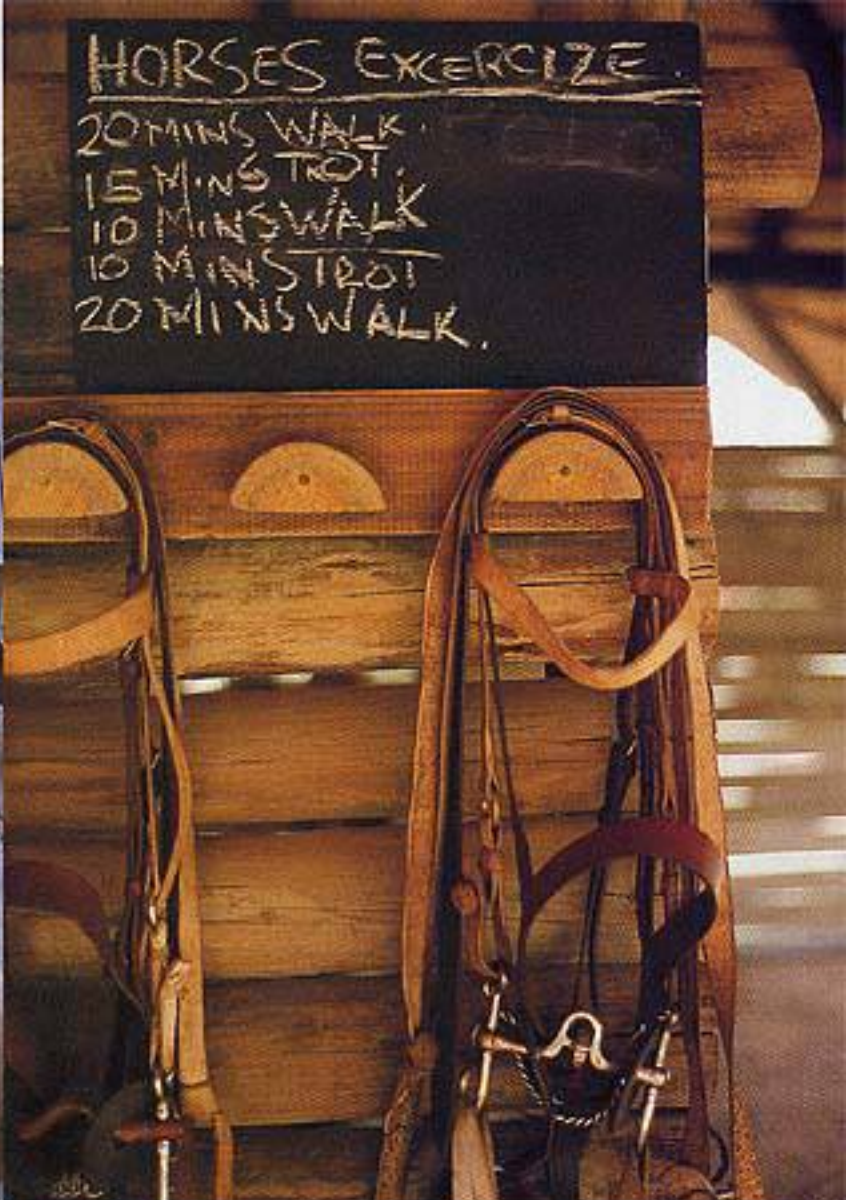 HORSES EXCERCIZE.
20 MINS WALK.
15 MINS TROT.
10 MINS WALK
10 MINS TROT
20 MINS WALK.